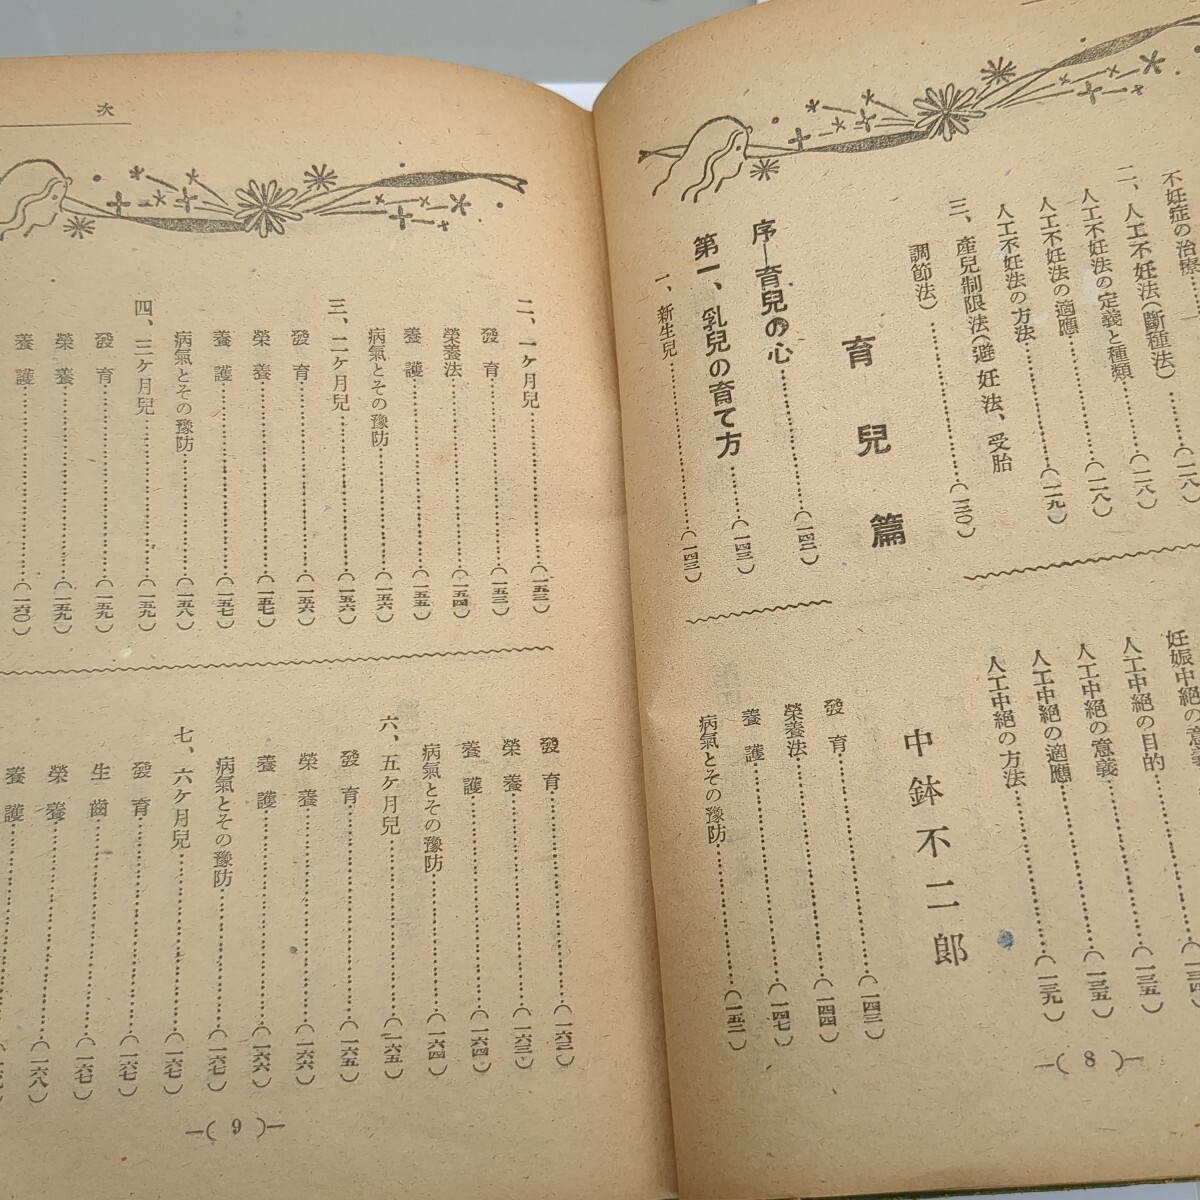 不妊症の治療……(一二八)
二、人工不妊法(斷種法)……(一二八)
人工不妊法の定義と種類……(一二八)
人工不妊法の適應……(一二九)
人工不妊法の方法
三、産兒制限法(避妊法、受胎
調節法)……(一三〇)
妊娠中絕の意義……(一三四)
人工中絕の目的……(一三五)
人工中絕の意義……(一三五)
人工中絕の適應……(一三九)
人工中絕の方法
育兒篇
中鉢不二郎
序―育兒の心……(一四二)
第一、乳兒の育て方……(一四三)
一、新生兒……(一四三)
發育……(一四三)
榮養法……(一四四)
養護……(一四七)
病氣とその豫防……(一五二)
―( 8 )―
次
二、一ケ月兒……(一五三)
發育……(一五三)
榮養法……(一五四)
養護……(一五五)
病氣とその豫防……(一五六)
三、二ケ月兒……(一五六)
發育……(一五六)
榮養……(一五七)
養護……(一五七)
病氣とその豫防……(一五八)
四、三ケ月兒……(一五九)
發育……(一五九)
榮養……(一五九)
養護……(一六〇)
發育……(一六三)
榮養……(一六三)
養護……(一六四)
病氣とその豫防……(一六四)
六、五ケ月兒……(一六五)
發育……(一六五)
榮養……(一六六)
養護……(一六六)
病氣とその豫防……(一六七)
七、六ケ月兒……(一六七)
發育……(一六七)
生齒……(一六七)
榮養……(一六八)
養護
―( 9 )―